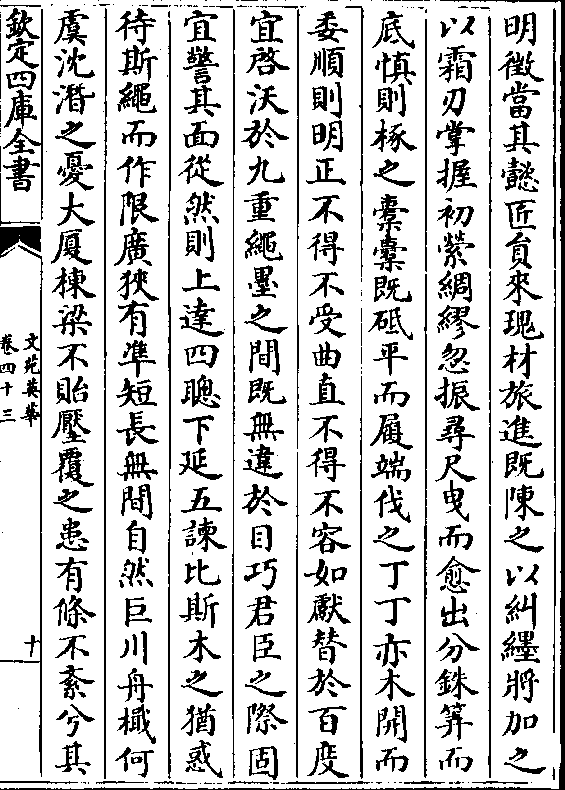 明徴當其懿匠負來瑰材旅進既陳之以糾纆將加之
以霜刃掌握初縈綢繆忽振尋尺曳而愈出分銖筭而
底慎則椓之橐橐既砥平而屨端伐之丁丁亦木開而
委順則明正不得不受曲直不得不容如獻替於百度
宜啓沃於九重繩墨之間既無違於目巧君臣之際固
宜謦其面從然則上達四聰下延五諫比斯木之猶惑
待斯繩而作限廣狹有準短長無間自然巨川舟檝何
虞沈潛之憂大厦棟梁不貽壓覆之患有條不紊兮其
欽定四庫全書
文苑英華
卷四十三
十